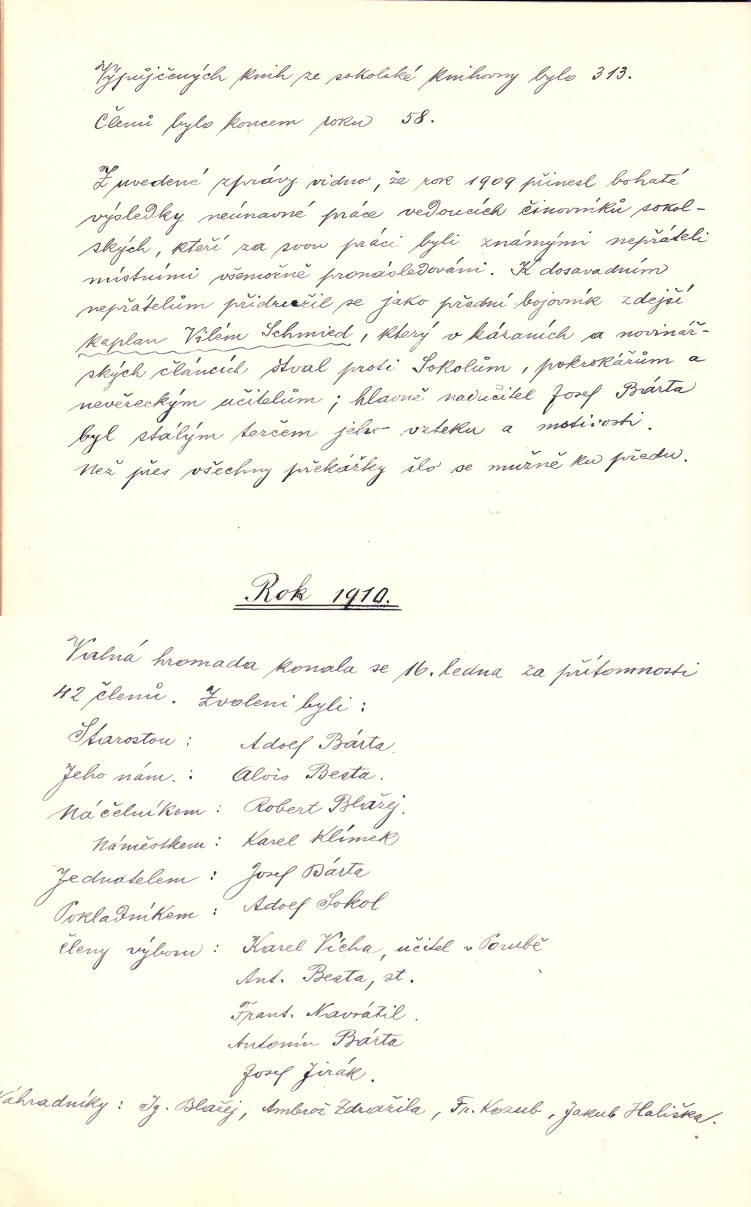 Výpůjčených knih ze sokolské knihovny bylo 313.
Členů bylo koncem roku 58.
Z uvedené zprávy vidno, že rok 1909 přinesl bohaté
výsledky neúnavné práce vedoucích činovníků sokol-
ských, kteří za svou práci byli známými nepřáteli
místními všemožně pronásledováni. K dosavadním
nepřátelům přidružil se jako přední bojovník zdejší
kaplan Vilém Schmied, který v kázaních a novinář-
ských článcích štval proti Sokolům, pokrokářům a
nevěreckým učitelům; hlavně nadučitel Josef Bárta
byl stálým terčem jeho vzteku a mstivosti.
Než přes všechny překážky šlo se mužně ku předu.
Rok 1910.
Valná hromada konala se 16. ledna za přítomnosti
42 členů. Zvoleni byli:
Starostou: Adolf Bárta.
Jeho nám.: Alois Besta.
Náčelníkem: Robert Blažej.
Náměstkem: Karel Klímek
Jednatelem: Josef Bárta
Pokladníkem: Adolf Sokol
členy výboru: Karel Vícha, učitel v Porubě
Ant. Besta, st.
Frant. Navrátil.
Antonín Bárta
Josef Jirák.
Náhradníky: Ig. Blažej, Ambrož Zdražila, Fr. Kozub, Jakub Hališka.